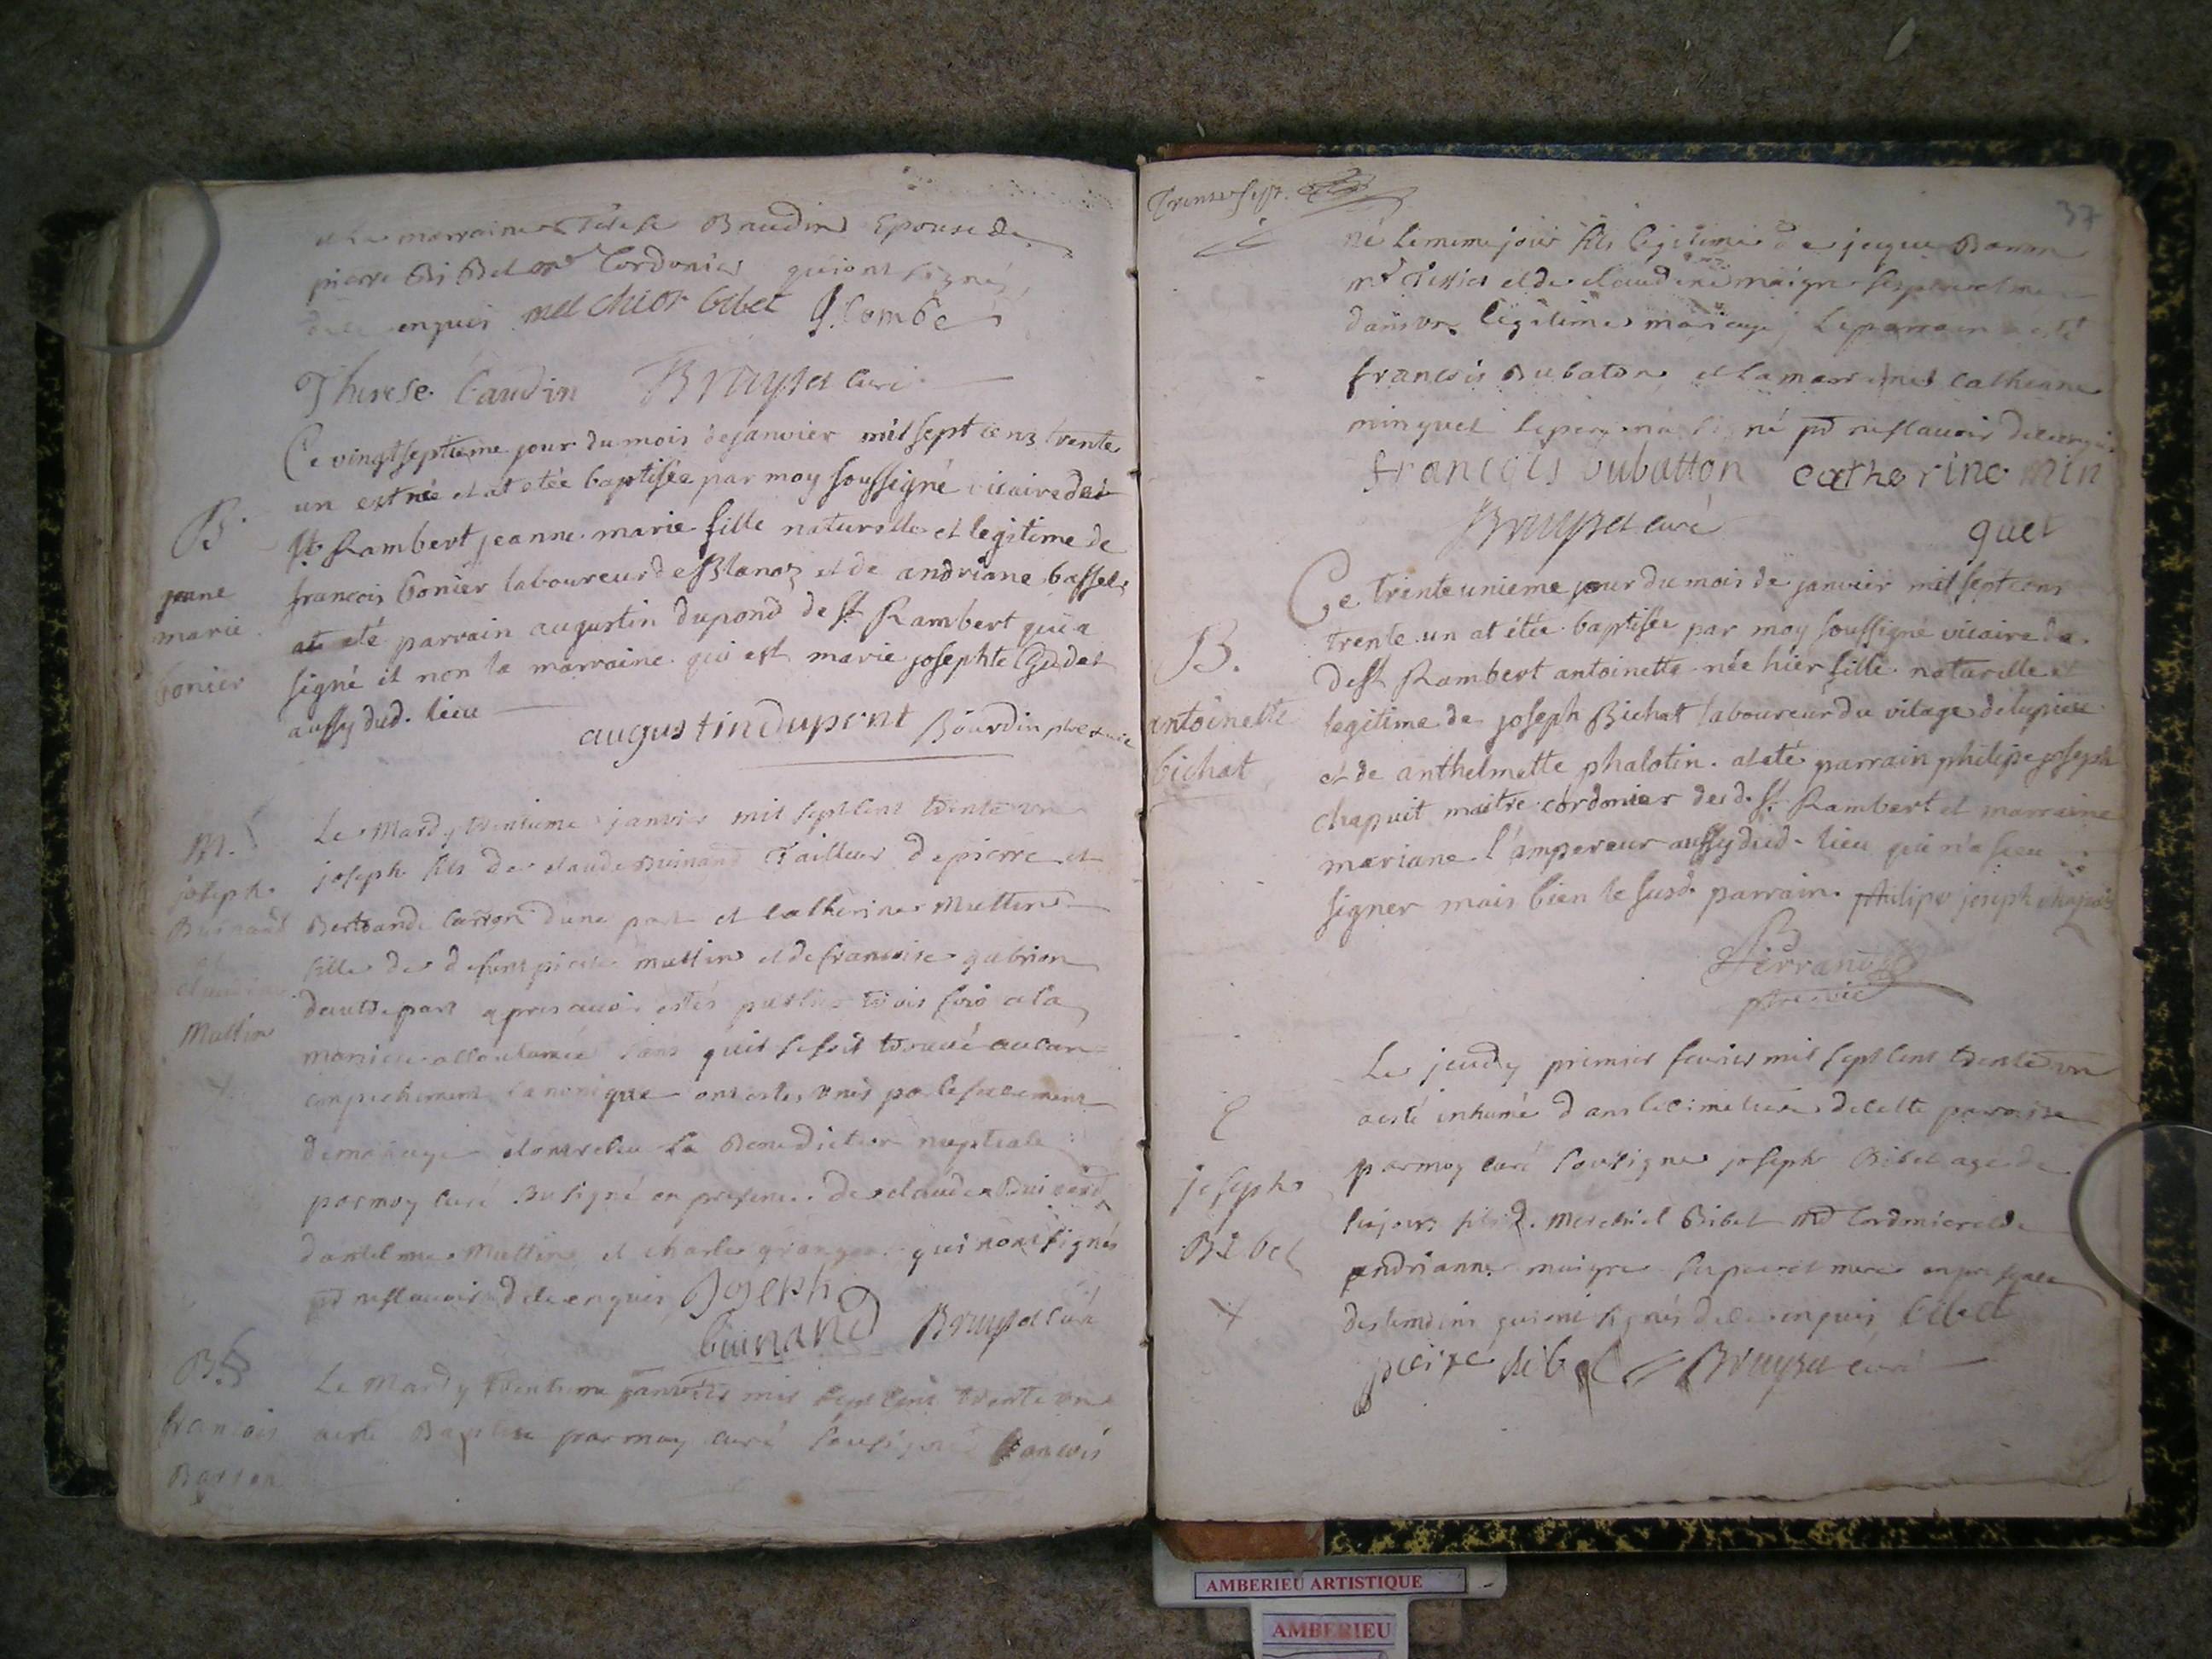 et la marraine Terese Baudin Epouse de
pierre Bibet md Cordonier qui ont signés
de ce enquis melchior bibet J. Combe
Therese baudin Bruyset curé
Ce vingt septieme jour du mois de janvier mil sept cens trente
un est née et at etée baptisée par moy soussigné vicaire de
B.
St. Rambert jeanne marie fille naturelle et legitime de
jeane
francois bonier laboureur de Blanaz et de andriane bassel
marie
at eté parrain augustin dupond de St Rambert qui a
bonier
signé et non la marraine qui est marie josephte
aussy dud. lieu
augustin dupont Bourdin ptre vic
M.
Le Mardy trentieme janvier mil sept cent trente un
joseph
joseph fils de claude Buinand Tailleur de pierre et
Buinand
Bertrande Carron d'une part et Catherine Muttin
fille de defunt pierre muttin et de francoise gabrion
Muttin
dautre part apres avoir estés publiés trois fois a la
maniere accoutumée sans qu'il se soit trouvé aucun
empechement canonique ont estes unis par le sacrement
de mariage et ont receu La Benediction nuptiale
par moy curé sousigné en presence de claude Buinand
dantelme Muttin et charle granger qui n'ont signés
pr ne scavoir de ce enquis Joseph
buinand Bruyset Curé
B.
Le Mardy trentieme janvier mil sept cent trente un
francois
a esté Baptise par moy curé sousigné francois
Barron
Trente sept.
37
né le meme jour fils legitime de jaque Baron
md Tissier et de claudine maigre ses pere et mere
dans un legitime mariage, Le parrain a esté
francois Dubaton et la marraine Catherine
minguet le pere n'a signé pr ne scavoir de ce enquis
francois Dubatton catherine min
Bruyset curé guet
Ce trente unieme jour du mois de janvier mil sept cens
B.
trente un at étée baptisée par moy soussigné vicaire de
de St Rambert antoinette née hier fille naturelle et
antoinette
legitime de joseph Bichat laboureur du vilage de lupieu
bichat
et de anthelmette phalotin. at eté parrain philipe joseph
chapuit maitre cordonier dud. St. Rambert et marraine
mariane l'ampereur aussy dud. lieu qui n'a sceu
signer mais bien le susd. parrain. philipe joseph chapuis
Ferrand
ptre vic
Le jeudy premier fevrier mil sept cent trente un
a esté inhumé dans le cimetiere de cette paroisse
par moy curé sousigné joseph Bibet age de
joseph
Bibet
andrianne maigre ses pere et mere en presence
des temoins qui ont signés de ce enquis bibet
peire bibet Bruyset curé
AMBERIEU ARTISTIQUE
AMBERIEU